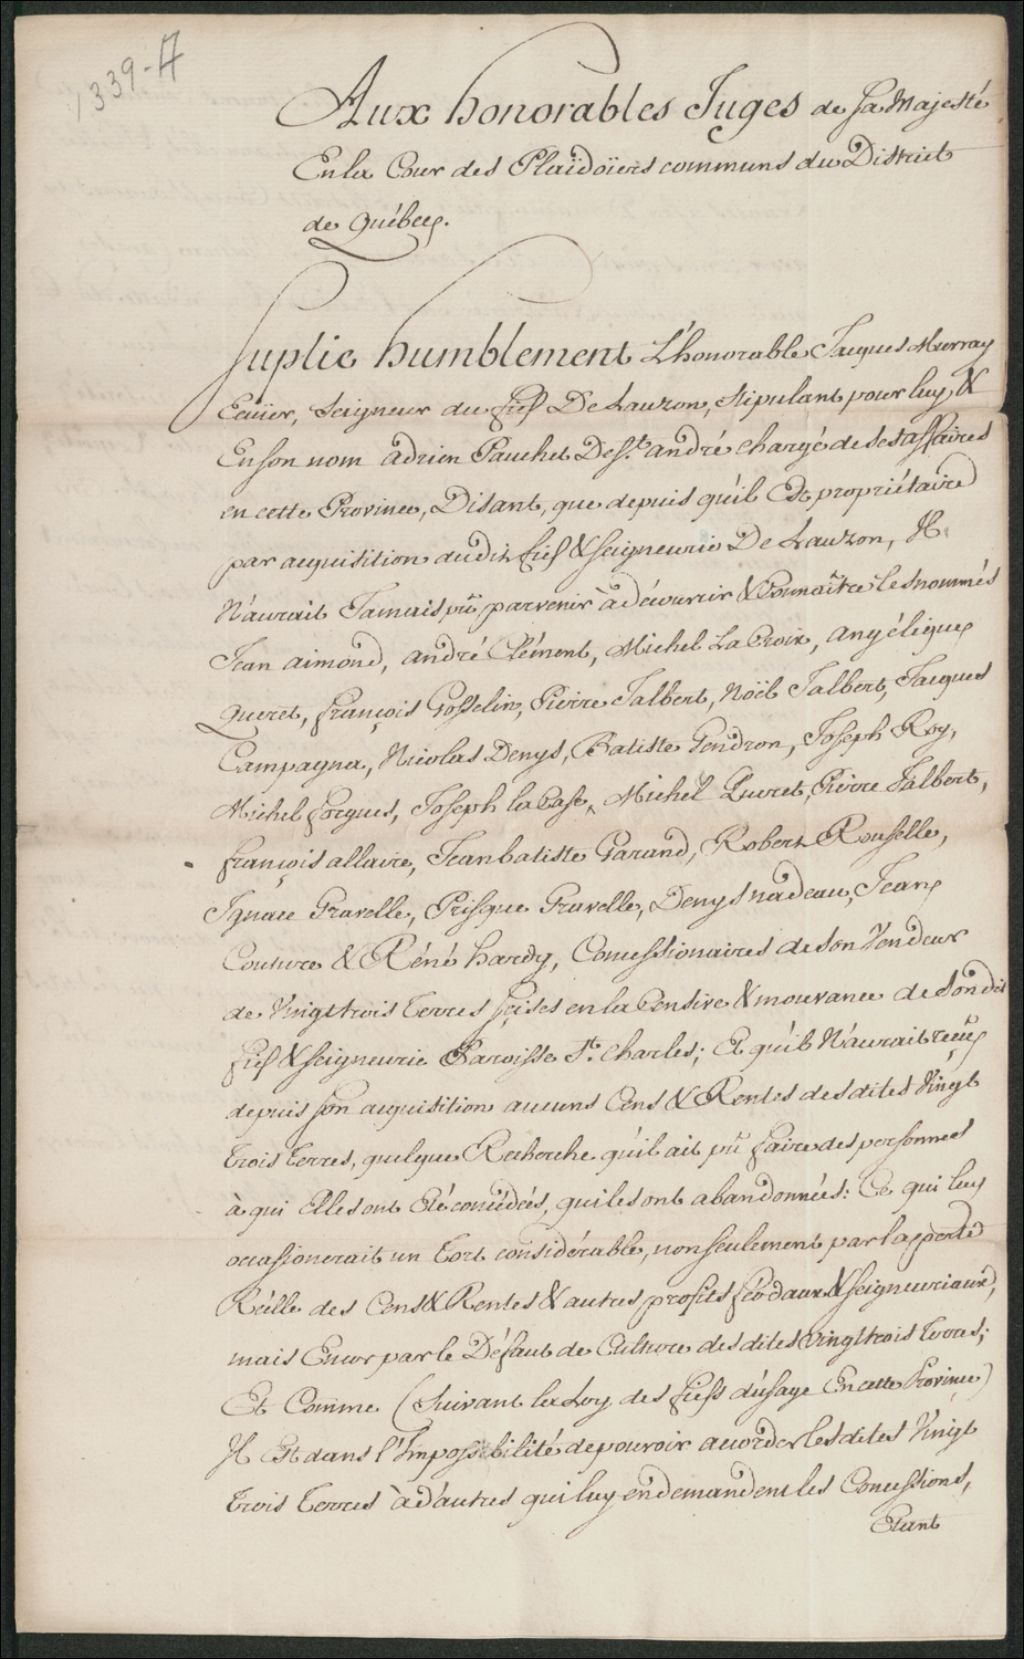 1339-A
Aux honorables Juges de sa Majesté
En la Cour des Plaidoïers communs du District
de Québec.
Suplie humblement L'honorable Jacques Murray
Ecuïer, Seigneur du fief De Lauzon, stipulant pour luy, &
En son nom adrien Pauchet De St. andré chargé de ses affaires
en cette Province, Disant, que depuis qu'il Est propriétaire
par acquisition dudit fief & seigneurie De Lauzon, Il
N'aurait Jamais pû parvenir à découvrir & Connaître les nommés
Jean aimond, andré Clément, Michel La Croix, angélique
Queret, françois Gosselin, Pierre Talbert, Noël Talbert, Jacques
Campagna, Nicolas Denys, Batiste Gendron, Joseph Roy,
Michel forgues, Joseph la Casse, Michel Queret, Pierre Talbert,
françois allaire, Jean batiste Garand, Robert Rouselle,
Ignace Gravelle, Prisque Gravelle, Denys nadeau, Jean
Couture & Réné hardy, Concessionaires de son Vendeur
de Vingt trois Terres scises en la Censive & mouvance de Son dit
fief & seigneurie Paroisse St. Charles; Et qu'il N'aurait reçû
depuis son acquisition aucuns Cens & Rentes des dites Vingt
trois terres, quelque Recherche qu'il ait pû faire des personnes
à qui Elles ont Eté concédées, qui les ont abandonnées: Ce qui luy
occasionerait un Tort considérable, non seulement par la perte
Réélle des Cens & Rentes & autres profits féodaux & seigneuriaux,
mais Encor par le Défaut de Culture des dites Vingt trois terres;
Et Comme (Suivant la Loy des fiefs d'usage En cette Province)
Il Est dans l'Impossibilité de pouvoir accorder les dites Vingt
trois Terres à d'autres qui luy en demandent les Concessions,
Etant